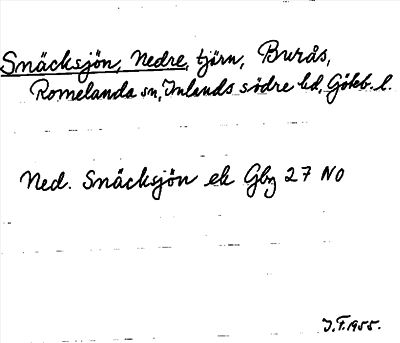 Snäcksjön, Nedre, tjärn, Burås,
Romelanda sn, Inlands södre hd, Götebg. l.
Ned. Snäcksjön ek Gbg 27 NO
I.F. 1955.